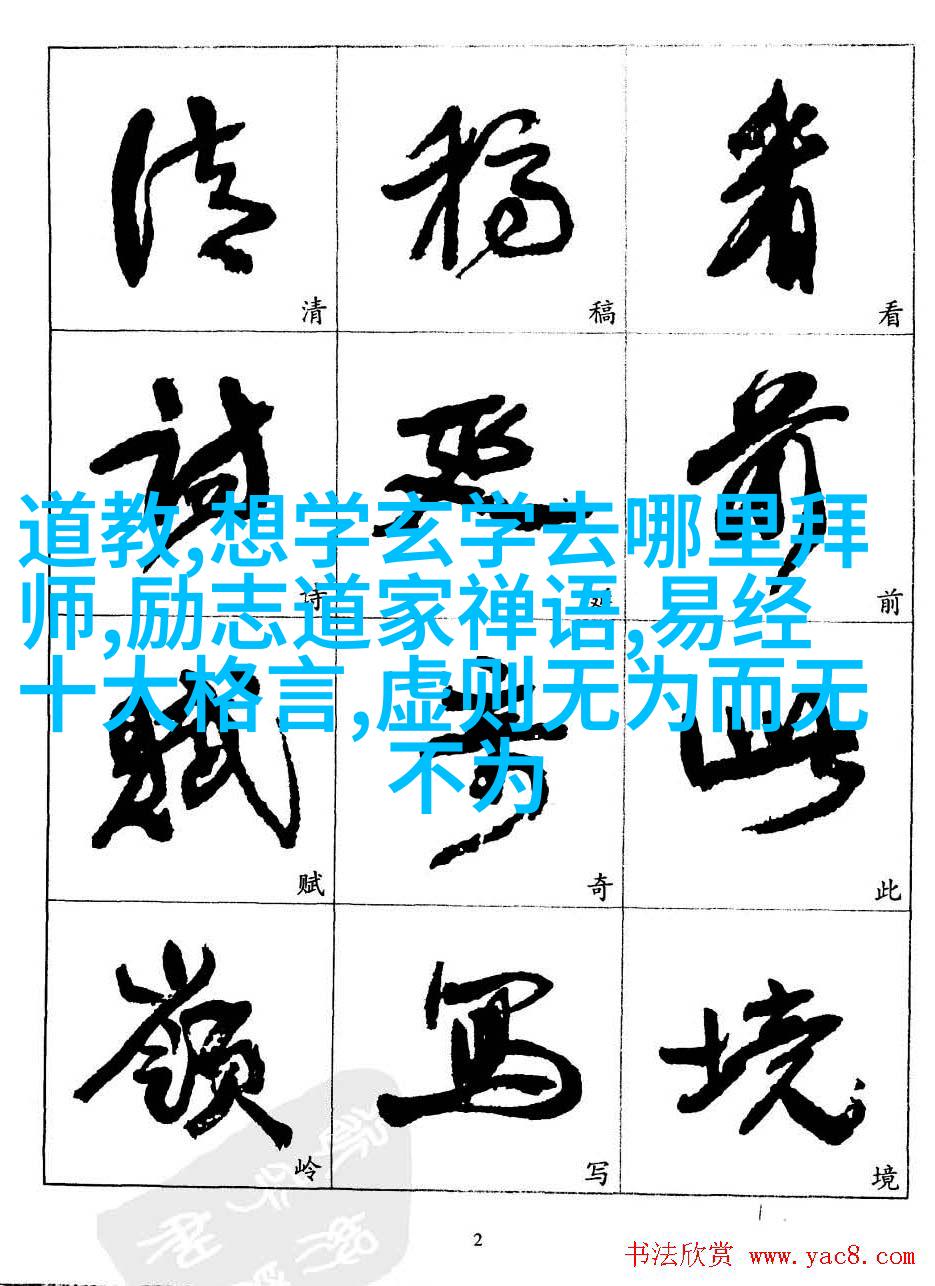 清 稿 看
诗 前
道教,想学玄学去哪里拜
师,励志道家禅语,易经
十大格言,虚则无为而无
不为
赋 奇 此
岭 写 境
2
书法欣赏 www.yac8.com